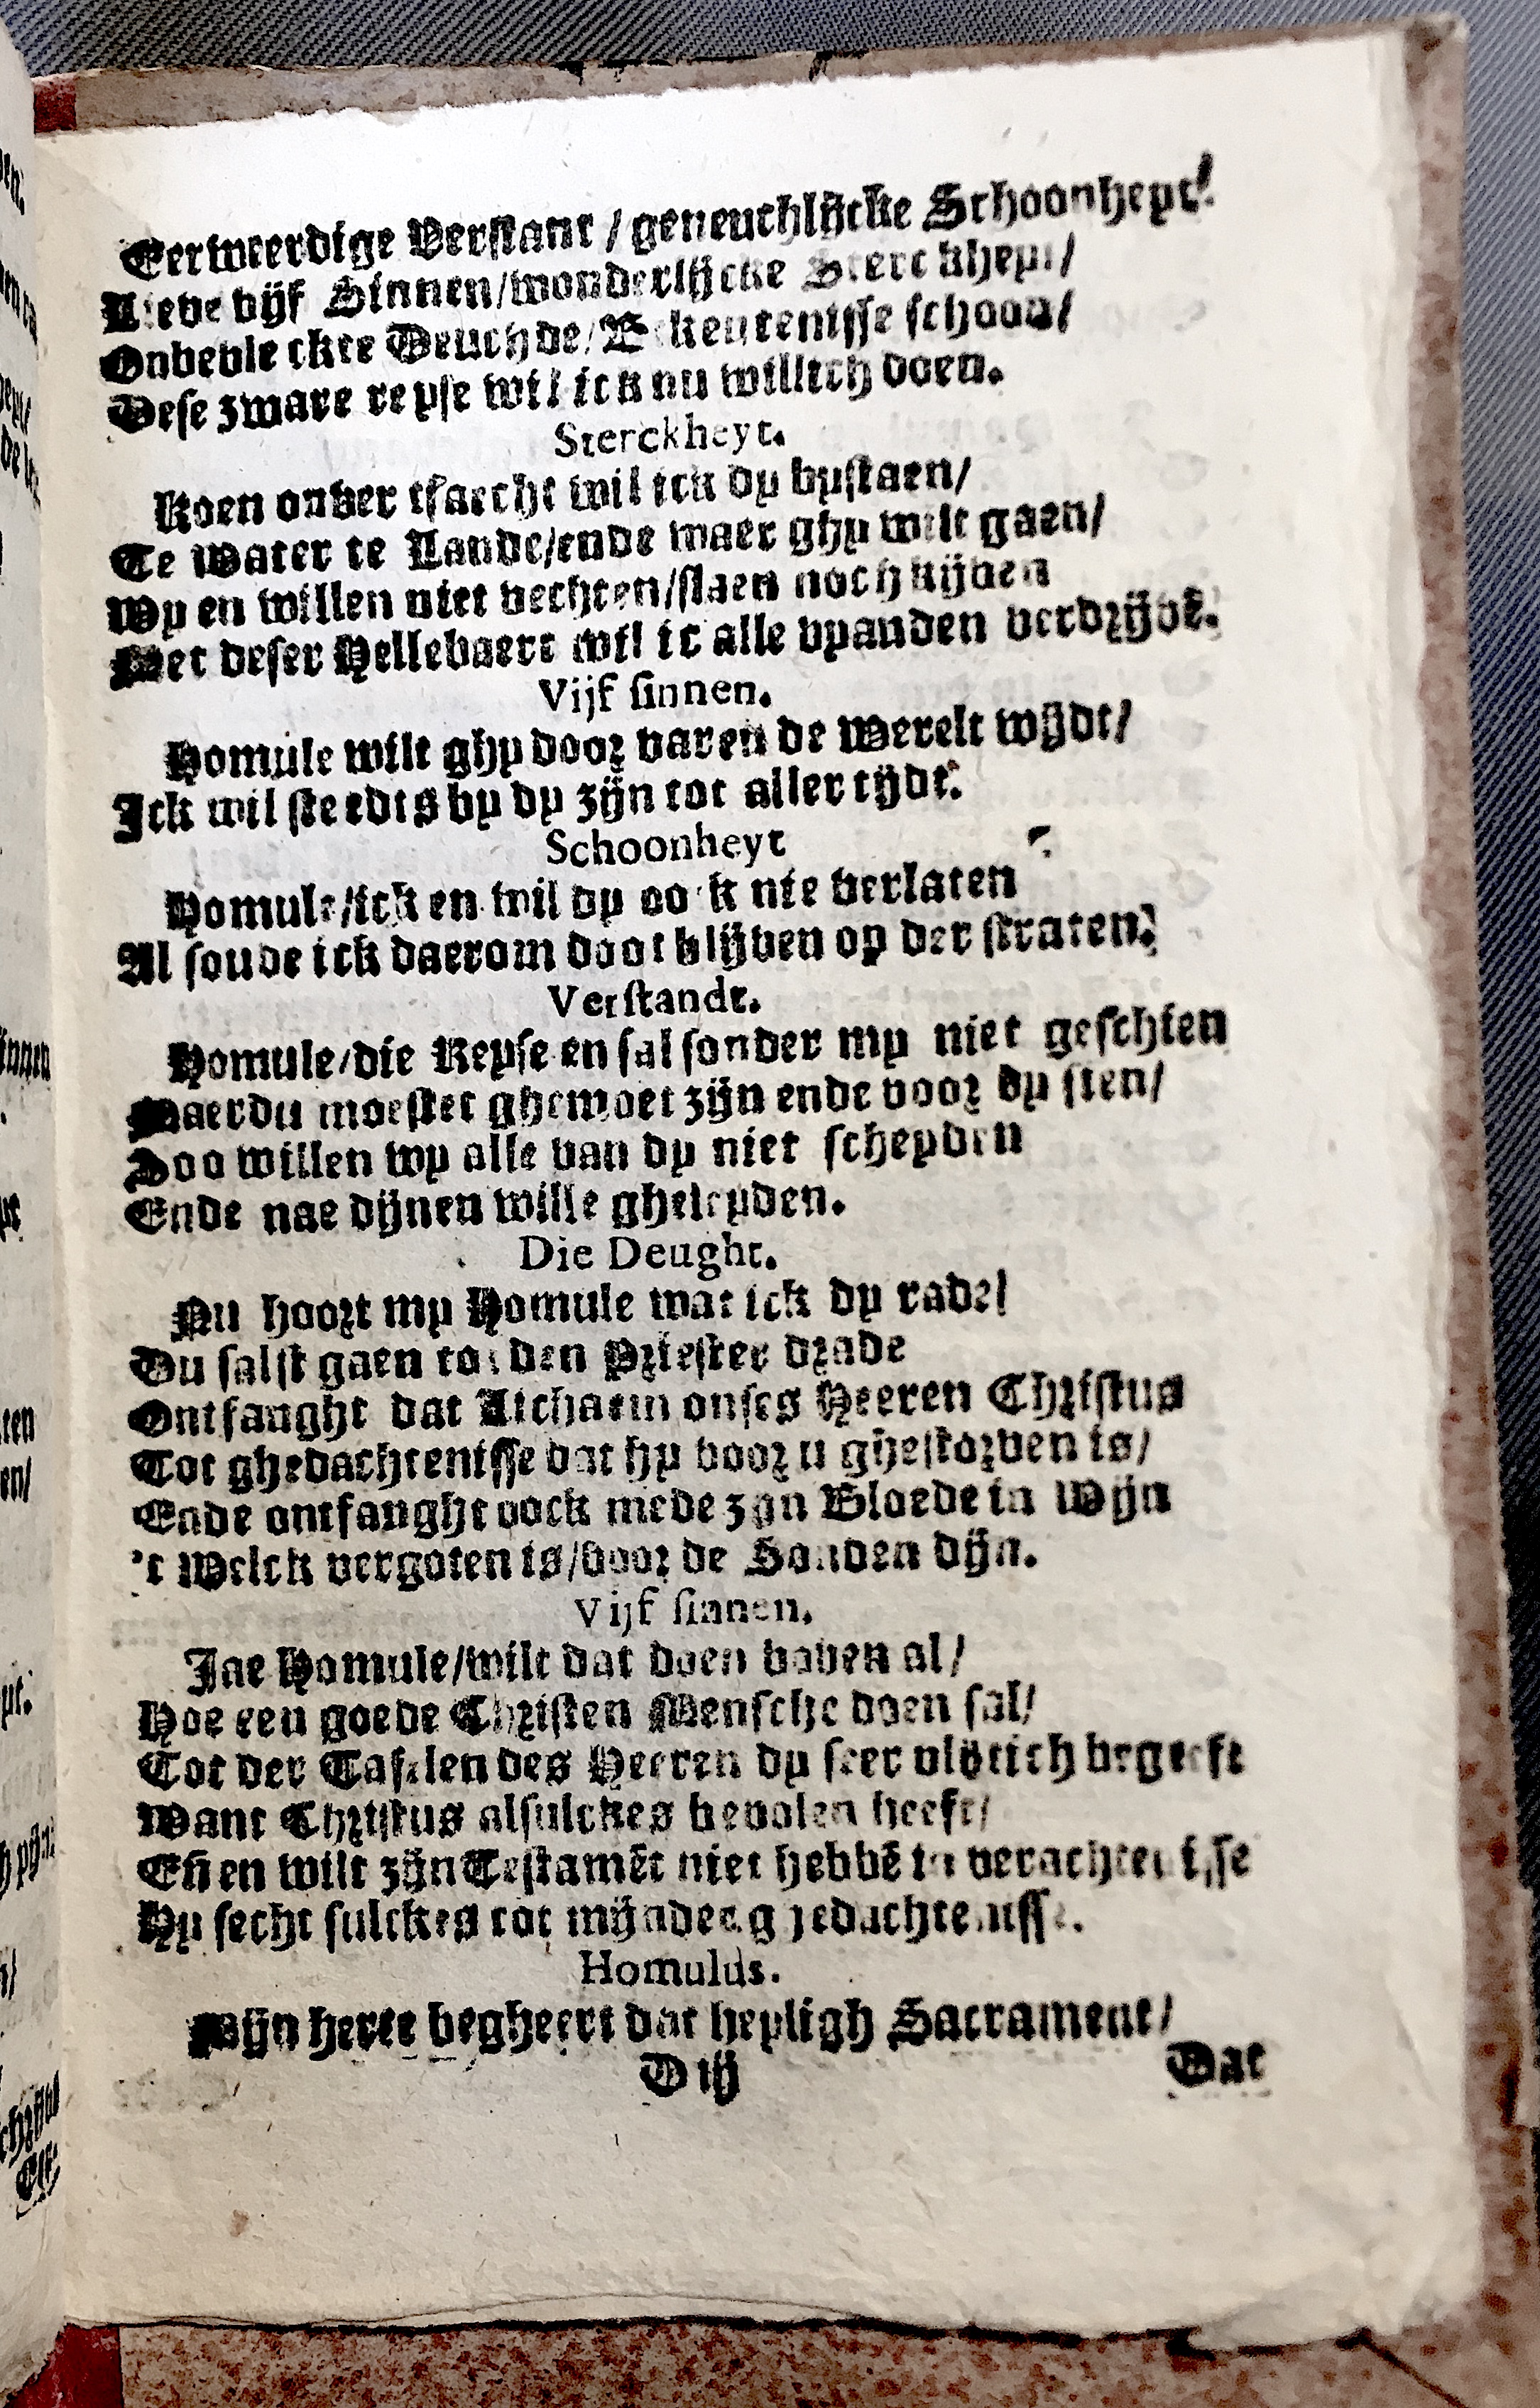 Eerweerdige Verstant / geneuchlijcke Schoonheyt!
Lieve vijf Sinnen / wonderlijcke Sterckheyt /
Onbevleckte Deuchde / Bekentenisse schoon /
Dese zware reyse wil ick nu willich doen.
Sterckheyt.
Koen onvertsaecht wil ick dy bystaen /
Te Water te Lande / ende waer ghy wilt gaen /
Wy en willen niet vechten / slaen noch kijven
Met deser Hellebaert wil ic alle vyanden verdrijvē.
Vijf sinnen.
Homule wilt ghy door varen de Werelt wijdt /
Ick wil steedts by dy zijn tot aller tijdt.
Schoonheyt
Homule / ick en wil dy oock nie verlaten
Al soude ick daerom doot blijven op der straten.
Verstandt.
Homule / die Reyse en sal sonder my niet geschien
Maer du moestet ghemoet zijn ende voor dy sien /
Soo willen wy alle van dy niet scheyden
Ende nae dijnen wille gheleyden.
Die Deught.
Nu hoort my Homule wat ick dy rade /
Du salst gaen tot den Priester drade
Ontfanght dat Lichaem onses Heeren Christus
Tot ghedachtenisse dat hy voor u ghestorven is /
Ende ontfanght oock mede zijn Bloede in Wijn
't Welck vergoten is / voor de Sonden dijn.
Vijf sinnen.
Jae Homule / wilt dat doen boven al /
Hoe een goede Christen Mensche doen sal /
Tot der Tafelen des Heeren dy seer vlijtich begeeft
Want Christus alsulckes bevolen heeft /
En en wilt zijn Testamēt niet hebbē in verachtenisse
Hy secht sulckes tot mijnder gedachtenisse.
Homulus.
Mijn herte begheert dat heyligh Sacrament /
D iij
Dat